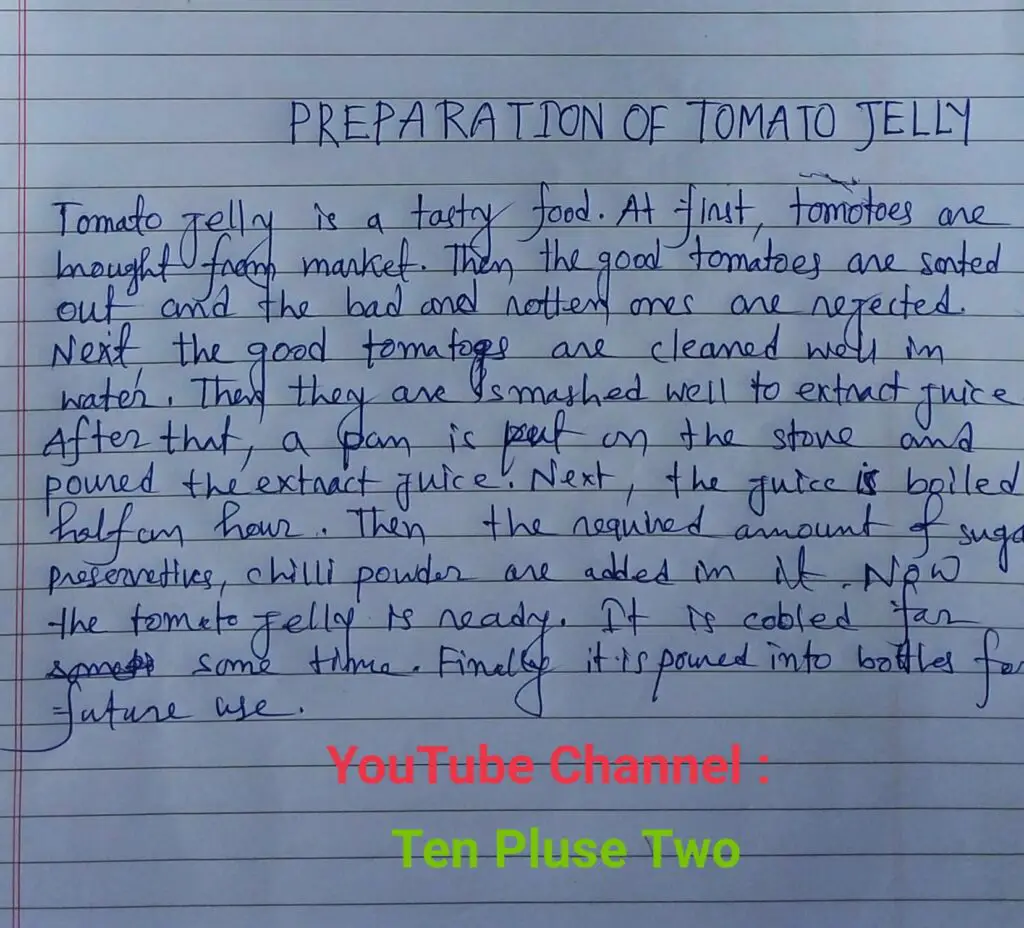 PREPARATION OF TOMATO JELLY
Tomato Jelly is a tasty food. At first, tomotoes are
brought from market. Then the good tomatoes are sorted
out and the bad and rotten ones are rejected.
Next, the good tomatoes are cleaned well in
water. Then they are smashed well to extract juice
After that, a pan is put on the stove and
poured the extract juice. Next, the juice is boiled
half an hour. Then the required amount of suga
preservetives, chilli powder are added in it. Now
the tomato jelly is ready. It is cobled far
some time. Finally it is poured into bottles for
future use.
YouTube Channel :
Ten Pluse Two